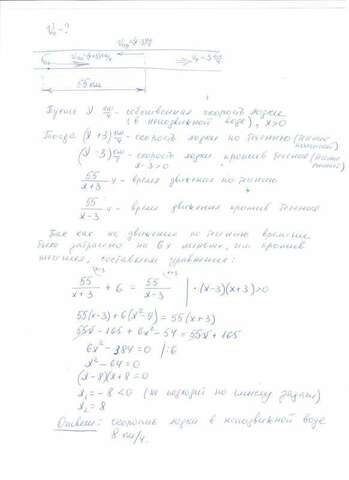 V₀ - ?
55 км
Пусть x км/ч - собственная скорость лодки
(в неподвижной воде), x>0
Тогда (x+3) км/ч - скорость лодки по течению
(x-3) км/ч - скорость лодки против течения
x-3>0
55/(x+3) ч - время движения по течению
55/(x-3) ч - время движения против течения
Так как на движение по течению времени
было затрачено на 6ч меньше, чем против
течения, составим уравнение:
55/(x+3) + 6 = 55/(x-3) | ·(x-3)(x+3)>0
55(x-3)+6(x²-9)=55(x+3)
55x-165+6x²-54=55x+165
6x²-384=0 |:6
x²-64=0
(x-8)(x+8)=0
x₁=-8<0 (не подходит по смыслу задачи)
x₂=8
Ответ: скорость лодки в неподвижной воде
8 км/ч.